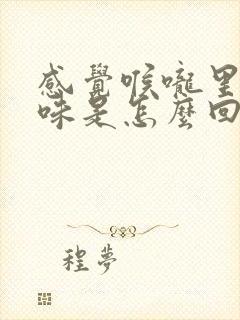 感覺喉嚨里
味是怎麼回
程夢